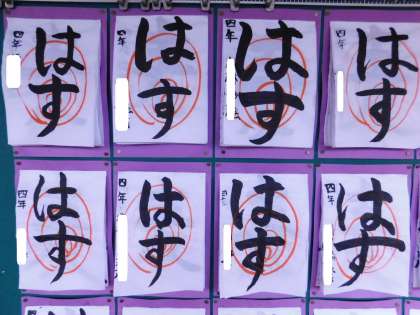 四年 はす
四年 はす
四年 はす
四年 はす
四年 はす
四年 はす
四年 はす
四年 はす